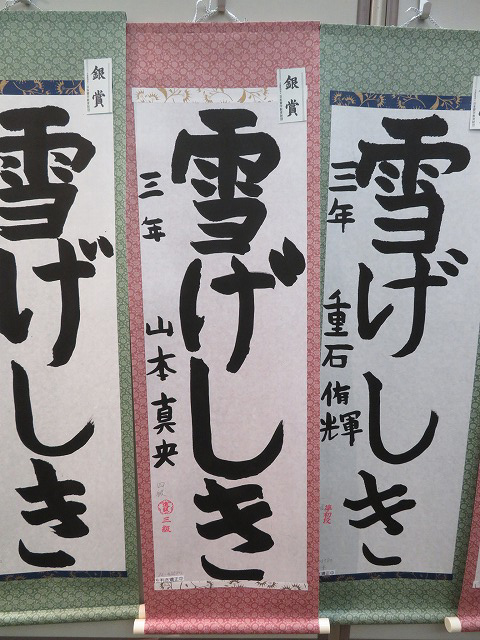 雪げしき
三年
重石侑輝
準初段
銀賞
雪げしき
三年
山本真央
三級
銀賞
雪げしき